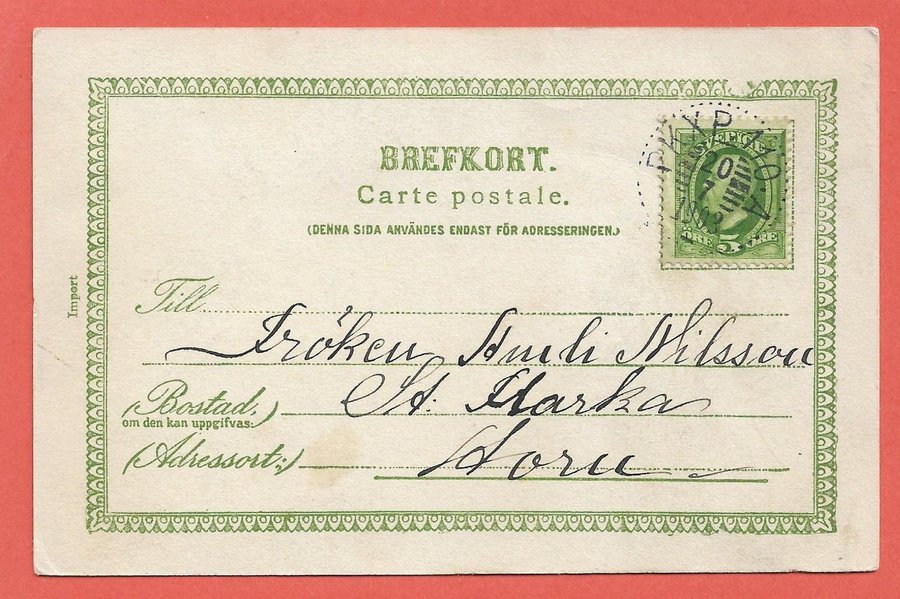 BREFKORT.
Carte postale.
(DENNA SIDA ANVÄNDES ENDAST FÖR ADRESSERINGEN.)
PKXP
SVERIGE
20
ÖRE 5 ÖRE
Import
Till
Fröken Amli Nilsson
(Bostad,
om den kan uppgifvas:)
St. Harka
(Adressort:)
Horn